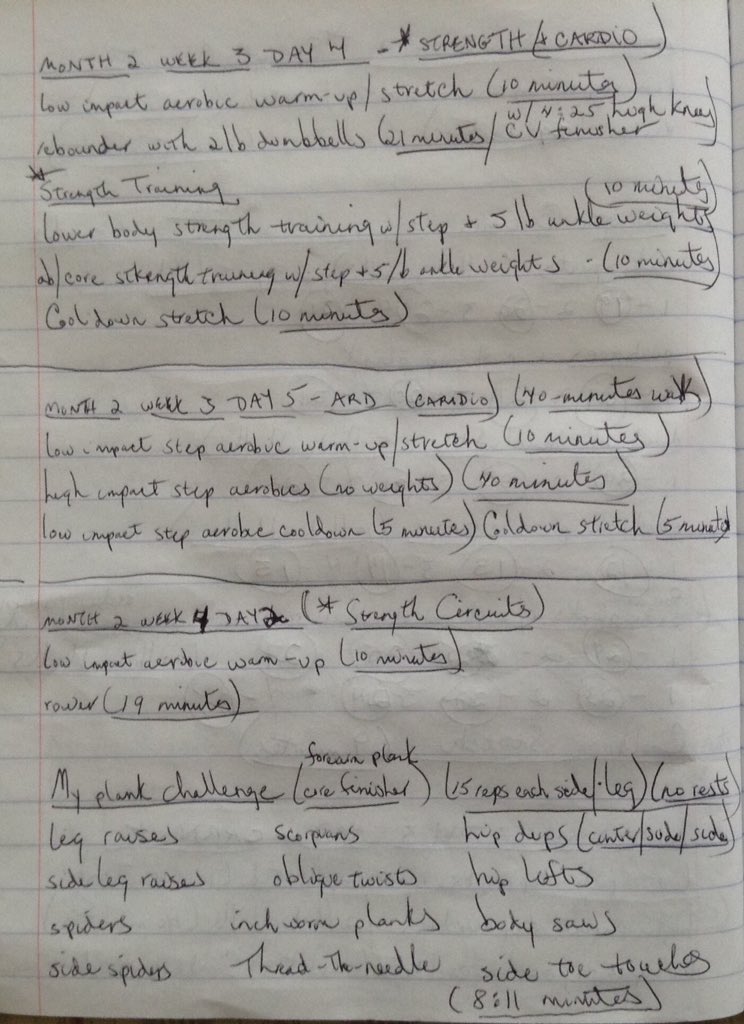 MONTH 2 WEEK 3 DAY 4 - * STRENGTH (+ CARDIO)
low impact aerobic warm-up/stretch (10 minutes)
rebounder with 2lb dumbbells (21 minutes/ w/ 4:25 high knee CV finisher)
* Strength Training
lower body strength training w/step + 5lb ankle weights (10 minutes)
ab/core strength training w/step + 5lb ankle weights - (10 minutes)
Cooldown stretch (10 minutes)
MONTH 2 WEEK 3 DAY 5 - ARD (CARDIO) (40-minutes walk)
low impact step aerobic warm-up/stretch (10 minutes)
high impact step aerobics (no weights) (40 minutes)
low impact step aerobic cooldown (5 minutes) Cooldown stretch (5 minutes)
MONTH 2 WEEK 4 DAY 2 (* Strength Circuits)
low impact aerobic warm-up (10 minutes)
rower (19 minutes)
forearm plank
My plank challenge (core finisher) (15 reps each side/leg) (no rests)
leg raises scorpians hip dips (center/side/side)
side leg raises oblique twists hip lifts
spiders inch worm planks body saws
side spiders Thread-The-needle side toe touches
(8:11 minutes)